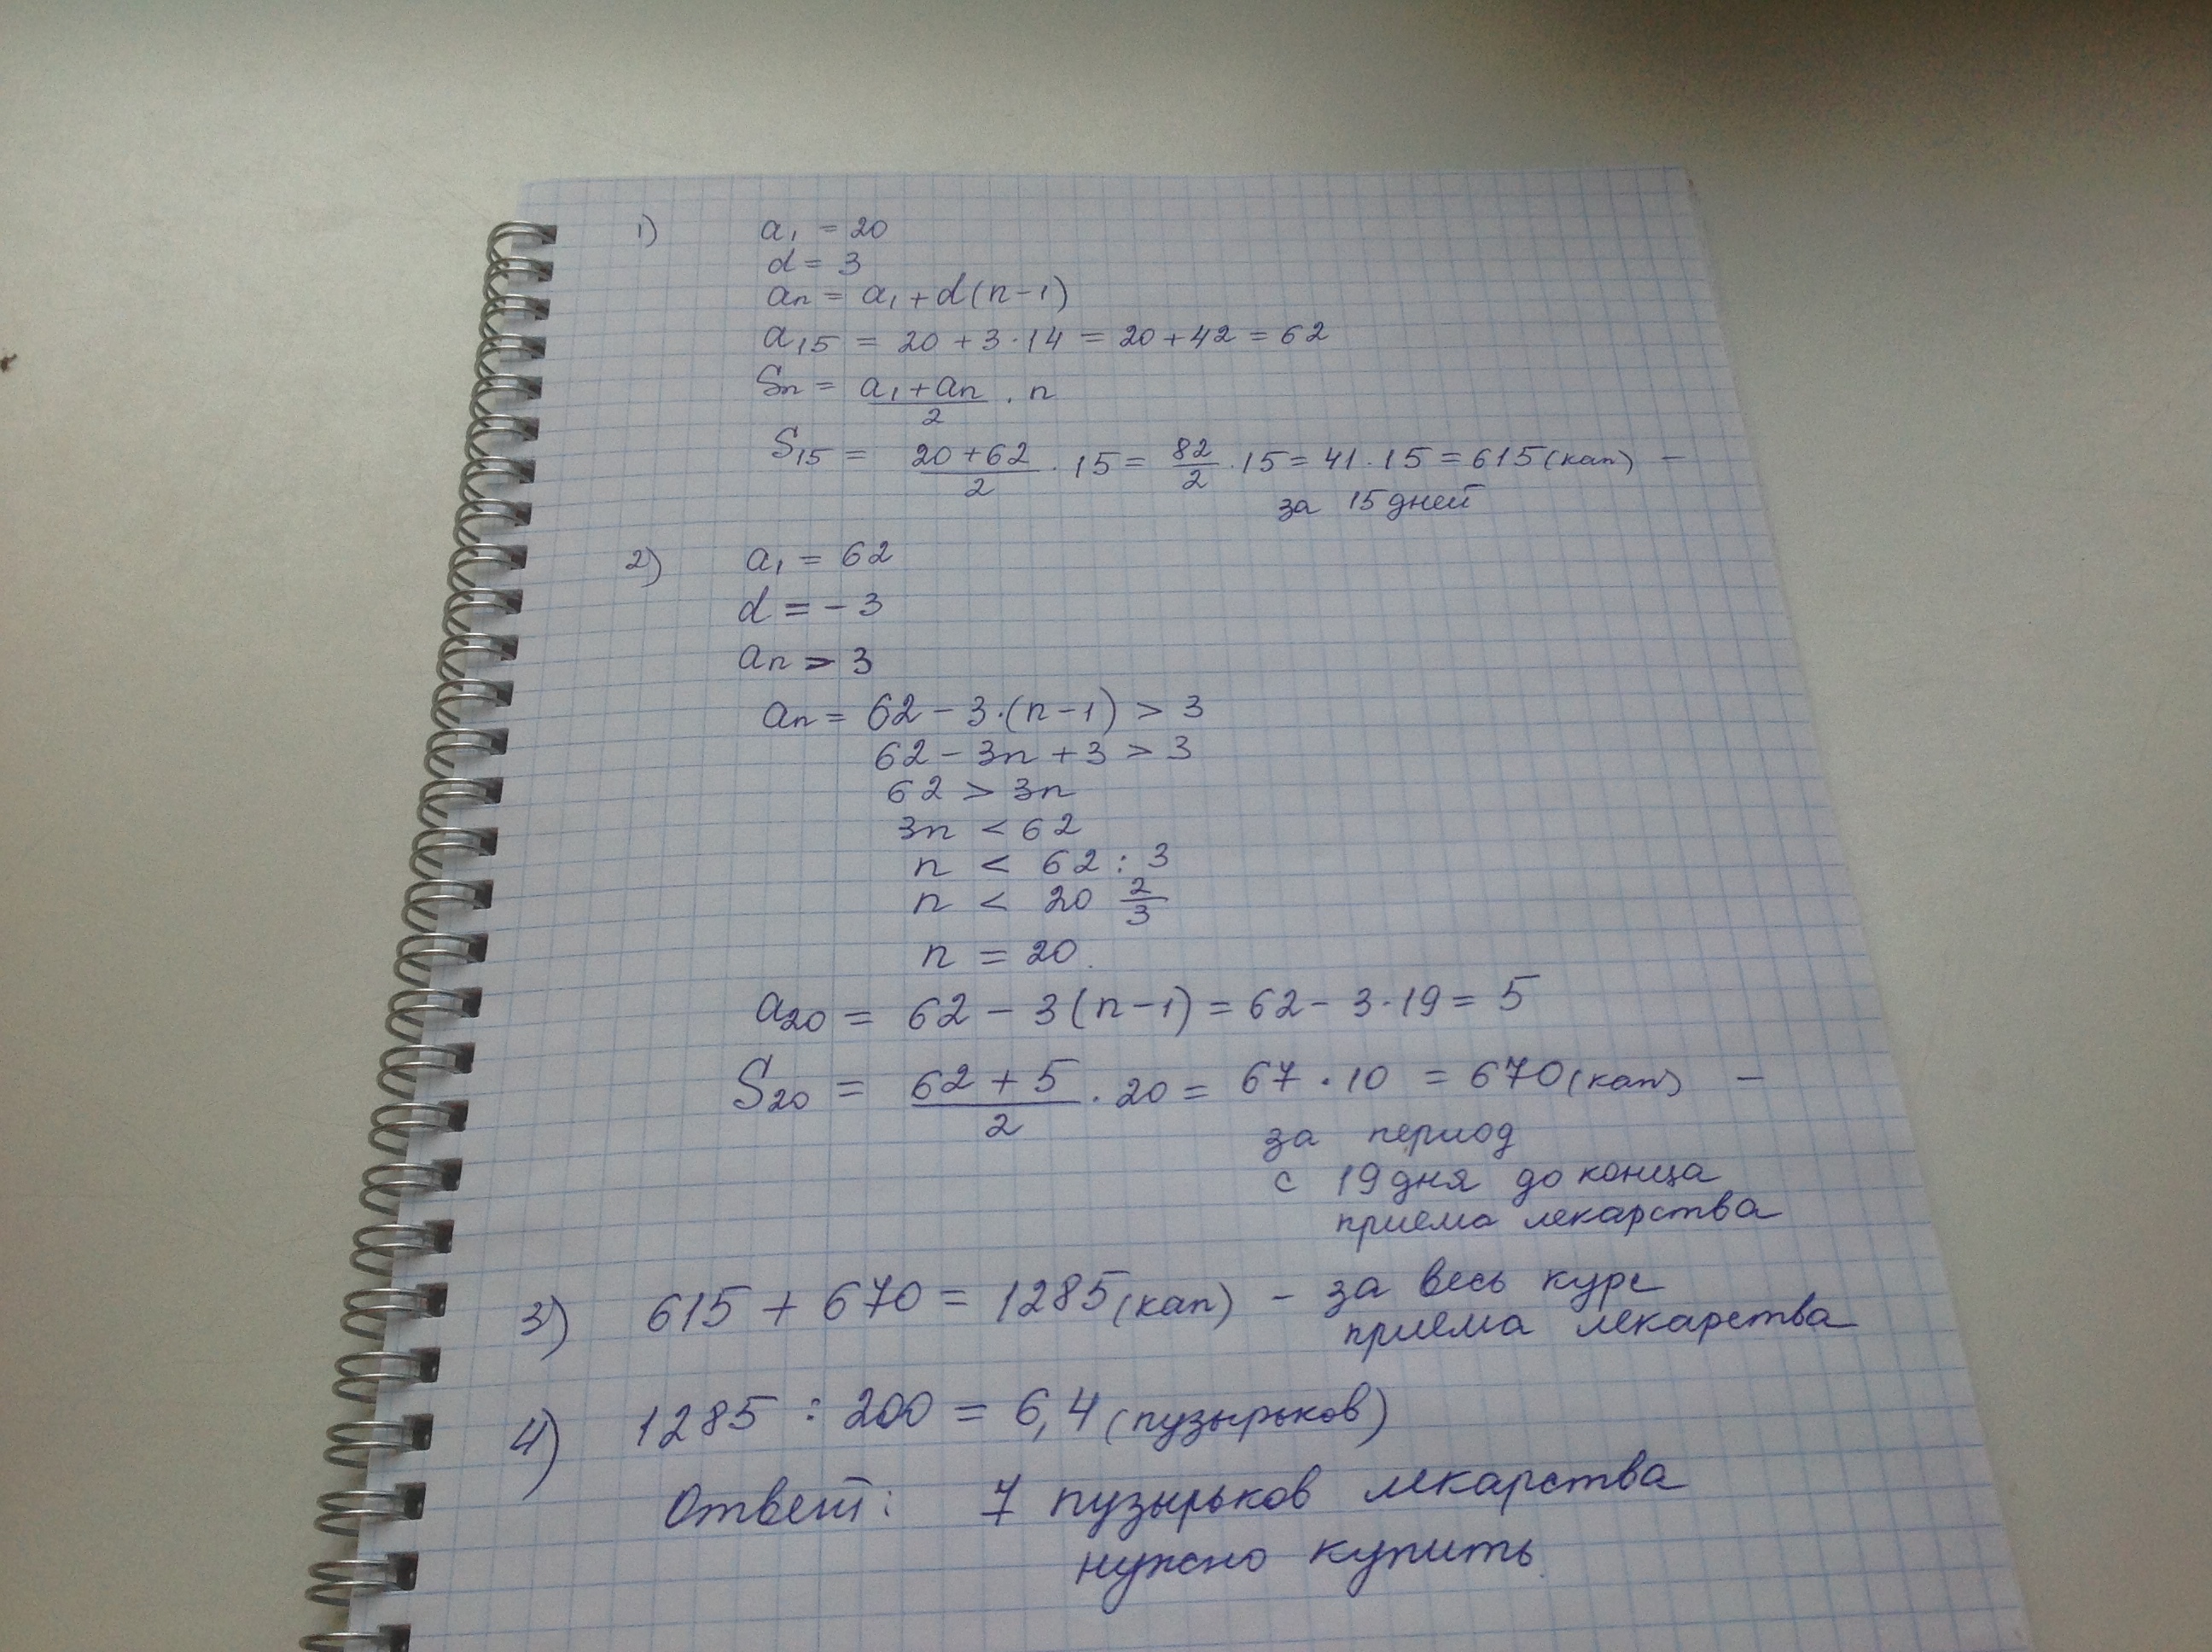 1) a₁ = 20
d = 3
aₙ = a₁ + d(n-1)
a₁₅ = 20 + 3·14 = 20 + 42 = 62
Sₙ = (a₁ + aₙ)/2 · n
S₁₅ = (20 + 62)/2 · 15 = 82/2 · 15 = 41 · 15 = 615 (кап) –
за 15 дней
2) a₁ = 62
d = -3
aₙ > 3
aₙ = 62 - 3·(n-1) > 3
62 - 3n + 3 > 3
62 > 3n
3n < 62
n < 62 : 3
n < 20 2/3
n = 20.
a₂₀ = 62 - 3(n-1) = 62 - 3·19 = 5
S₂₀ = (62 + 5)/2 · 20 = 67 · 10 = 670 (кап) –
за период
с 19 дня до конца
приема лекарства
3) 615 + 670 = 1285 (кап) – за весь курс
приема лекарства
4) 1285 : 200 = 6,4 (пузырьков)
Ответ: 7 пузырьков лекарства
нужно купить.